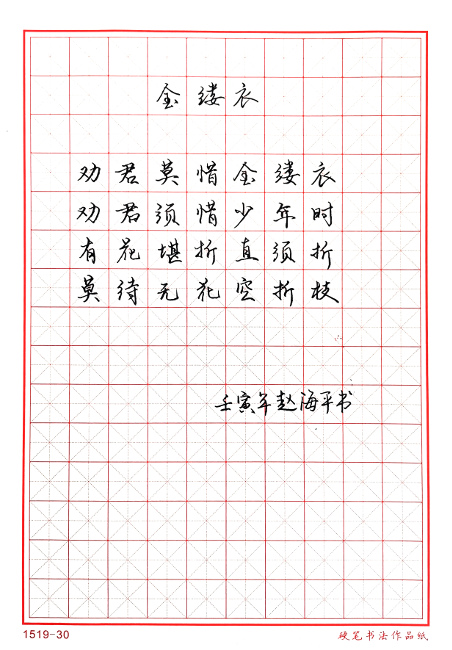 金缕衣
劝君莫惜金缕衣
劝君须惜少年时
有花堪折直须折
莫待无花空折枝
壬寅年赵海平书
1519-30
硬笔书法作品纸